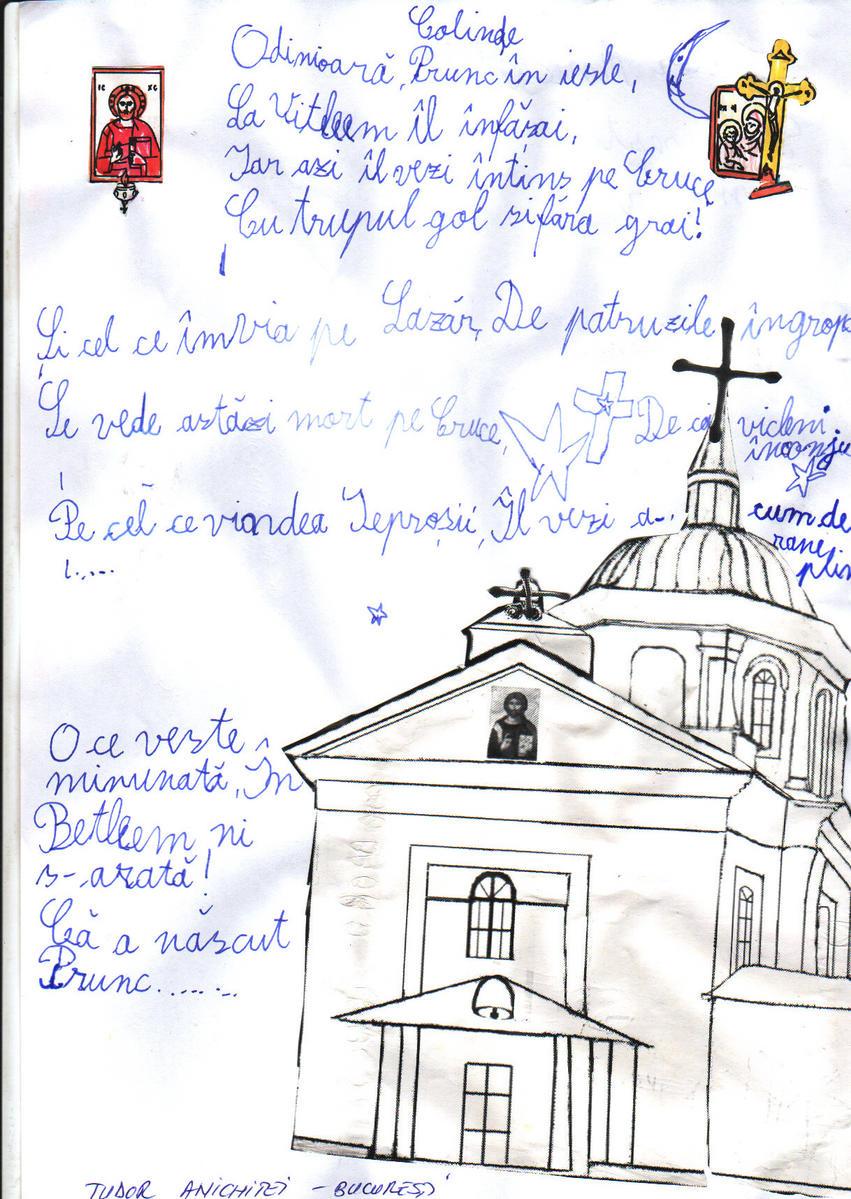 Colinde
Odinioară, Prunc în iesle,
La Vitleem îl înfășai,
Iar azi îl vezi întins pe Cruce
Cu trupul gol si făra grai!
Și cel ce înVia pe Lazăr, De patruzile îngrop
Se vede astăzi mort pe Cruce, De cei vicleni
înconju
Pe cel ce vindea Ieproșii, Îl vezi a... cum de
rane
plin
O ce veste
minunată, În
Betleem ni
s-arată!
Că a născut
Prunc.......
IC XC
TUDOR ANICHITEI - BUCUREȘTI